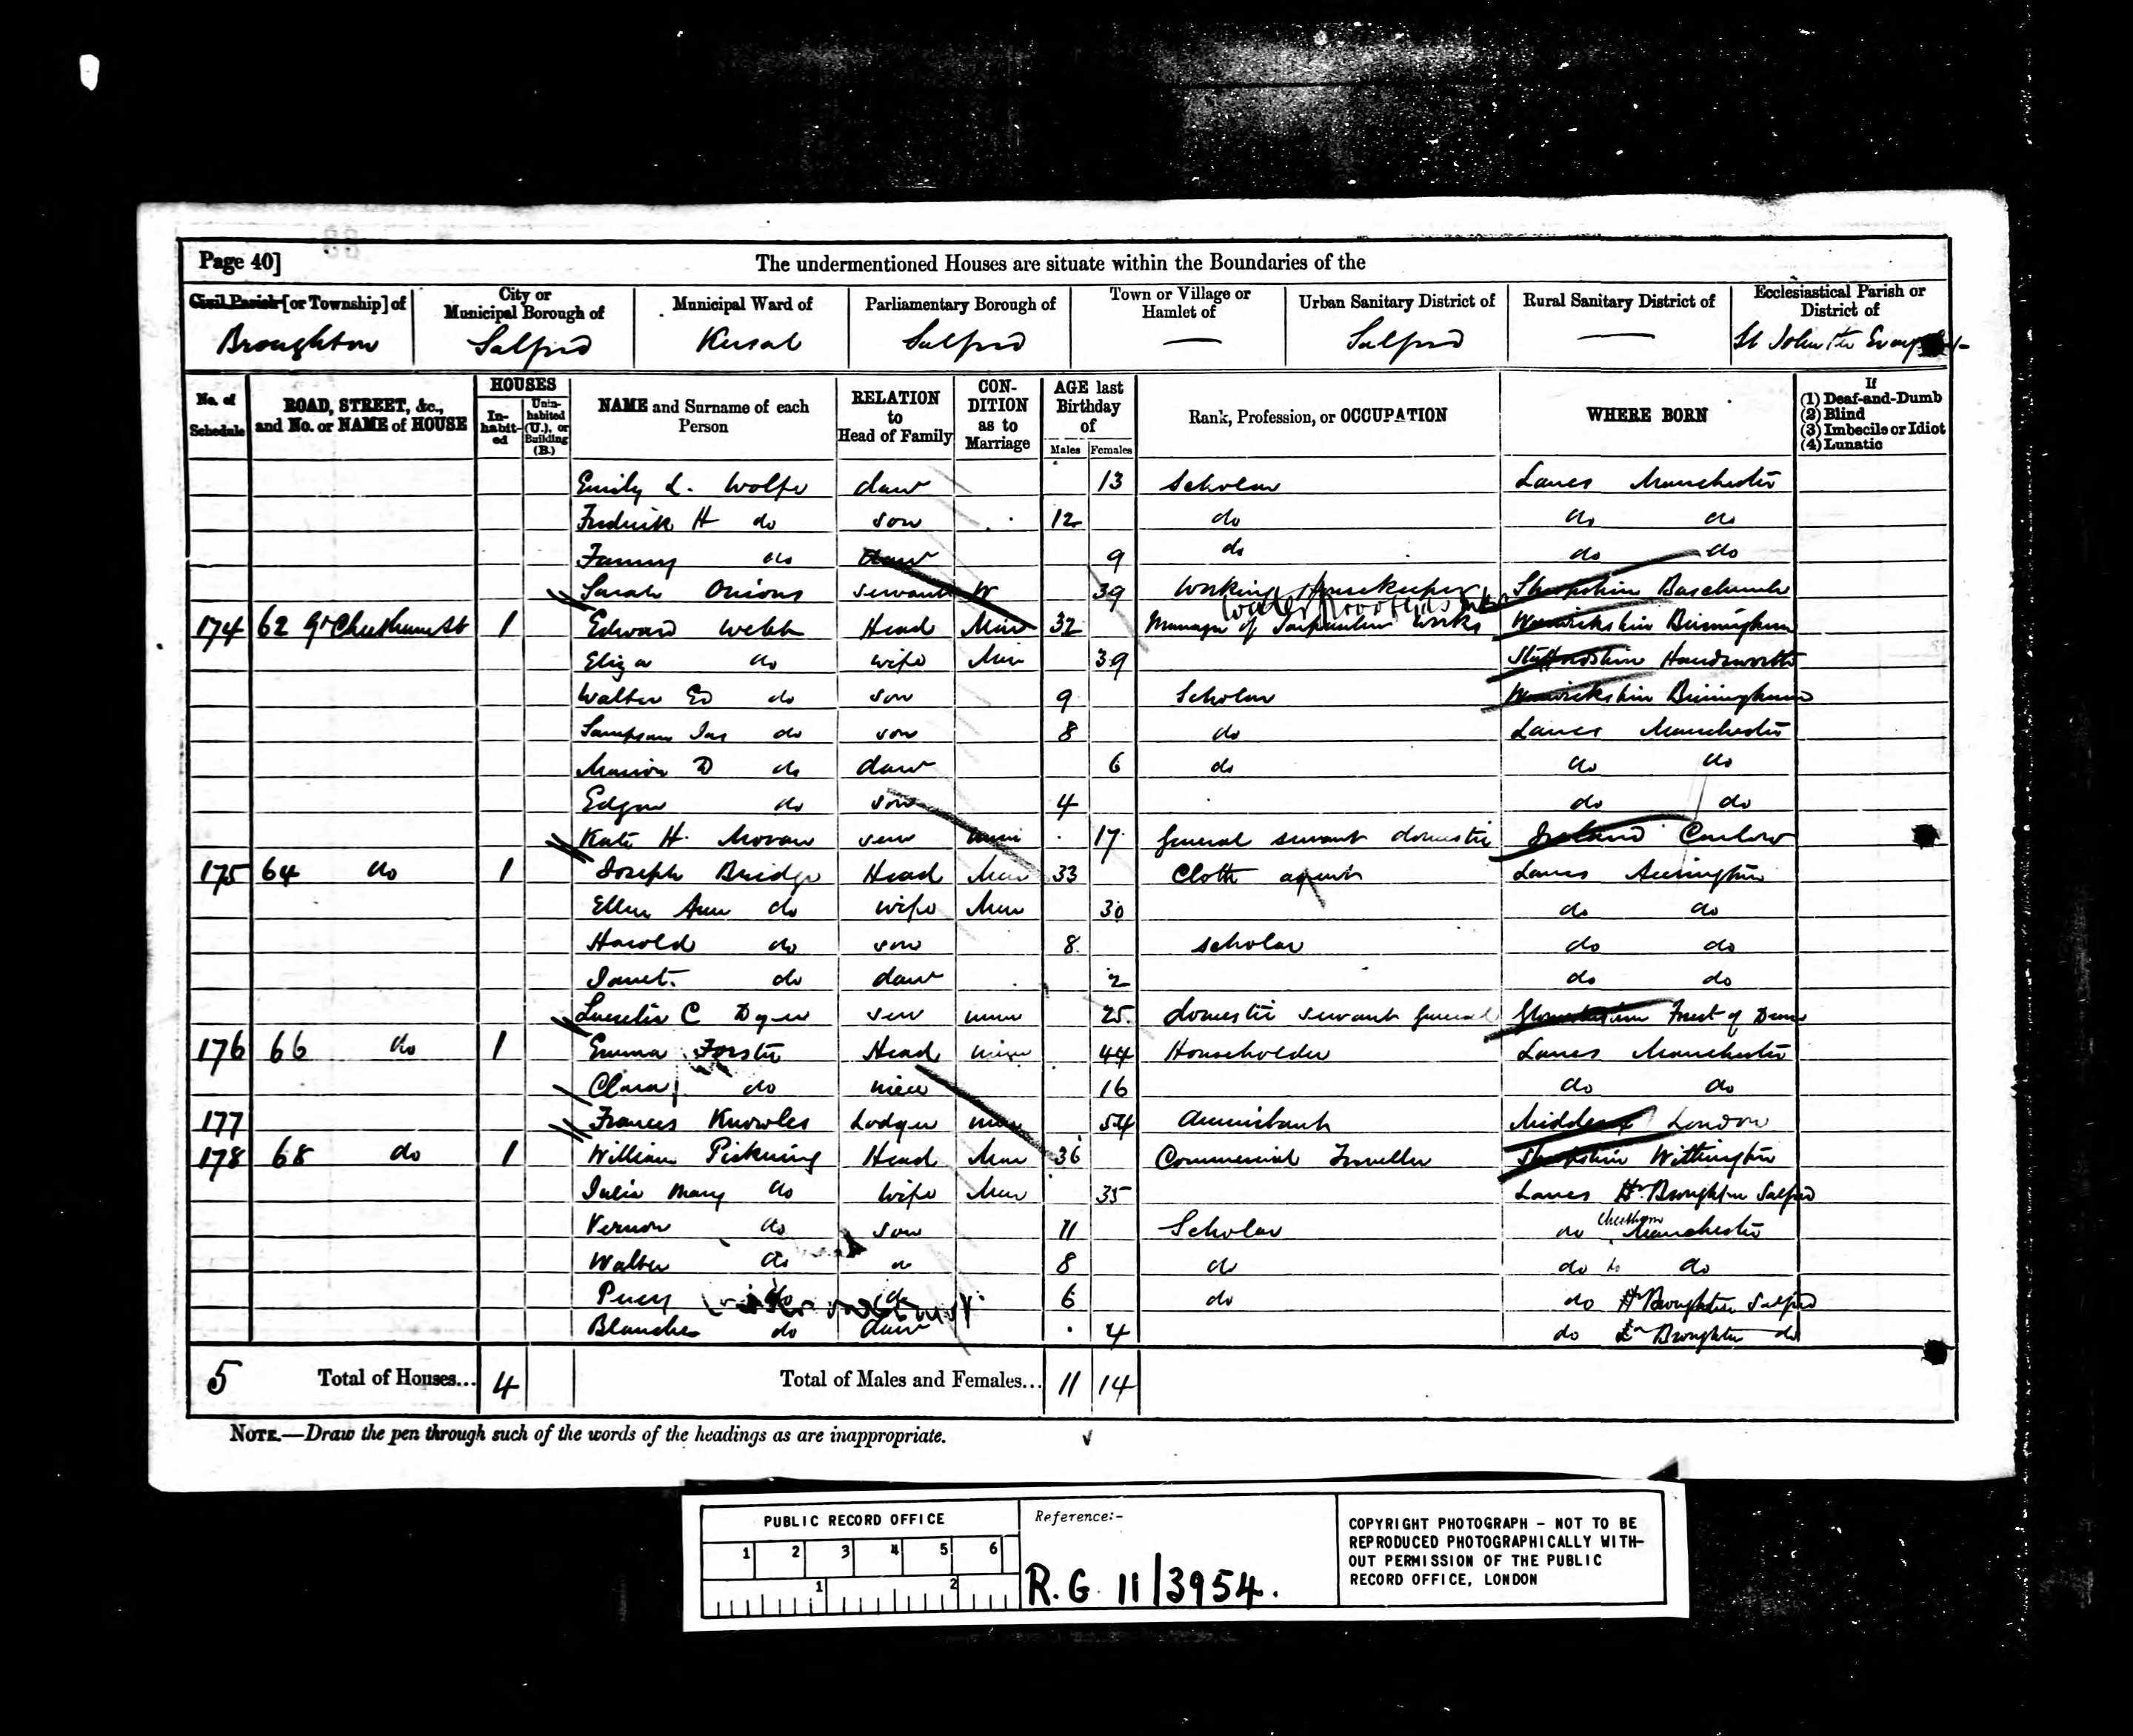 Page 40]
The undermentioned Houses are situate within the Boundaries of the
Civil Parish [or Township] of
City or Municipal Borough of
Municipal Ward of
Parliamentary Borough of
Town or Village or Hamlet of
Urban Sanitary District of
Rural Sanitary District of
Ecclesiastical Parish or District of
Broughton Salford Kersal Salford — Salford — St John the
No. of Schedule
ROAD, STREET, &c., and No. or NAME of HOUSE
HOUSES
In-habit-ed
Unin-habited (U.), or Building (B.)
NAME and Surname of each Person
RELATION to Head of Family
CON-DITION as to Marriage
AGE last Birthday of
Males Females
Rank, Profession, or OCCUPATION
WHERE BORN
If
(1) Deaf-and-Dumb
(2) Blind
(3) Imbecile or Idiot
(4) Lunatic
Emily L. Wolfe daur 13 Scholar Lancs Manchester
Fredrick H do son 12 do do do
Fanny do daur 9 do do do
Sarah Onions servant W 39 Working Housekeeper Shropshire Baschurch
174 62 Gt Cheetham St 1 Edward Webb Head Mar 32 Manager of Tarpaulin Works Warwickshire Birmingham
Eliza do wife Mar 39 Staffordshire Handsworth
Walter Ed do son 9 Scholar Warwickshire Birmingham
Sampson Jas do son 8 do Lancs Manchester
Marion D do daur 6 do do do
Edgar do son 4 do do
Kate H. Moran serv unm 17 General servant domestic Ireland Carlow
175 64 do 1 Joseph Bridge Head Mar 33 Cloth agent Lancs Accrington
Ellen Ann do wife Mar 30 do do
Harold do son 8 scholar do do
Janet do daur 2 do do
C Dyer serv unm 25 domestic servant general Gloucestershire Forest of Dean
176 66 do 1 Emma Forster Head unm 44 Householder Lancs Manchester
Clara do niece 16 do do
177 Frances Knowles Lodger 54 Annuitant Middlesex London
178 68 do 1 William Pickering Head Mar 36 Commercial Traveller Shropshire Withington
Julia Mary do Wife Mar 35 Lancs Hr Broughton Salford
Vernon do son 11 Scholar do Cheetham Manchester
Walter do do 8 do do do do
Percy do do 6 do do Hr Broughton Salford
Blanche do daur 4 do Lr Broughton do
5 Total of Houses... 4 Total of Males and Females... 11 14
NOTE.—Draw the pen through such of the words of the headings as are inappropriate.
PUBLIC RECORD OFFICE
1 2 3 4 5 6
1 2
Reference:-
R.G. 11/3954.
COPYRIGHT PHOTOGRAPH - NOT TO BE
REPRODUCED PHOTOGRAPHICALLY WITH-
OUT PERMISSION OF THE PUBLIC
RECORD OFFICE, LONDON